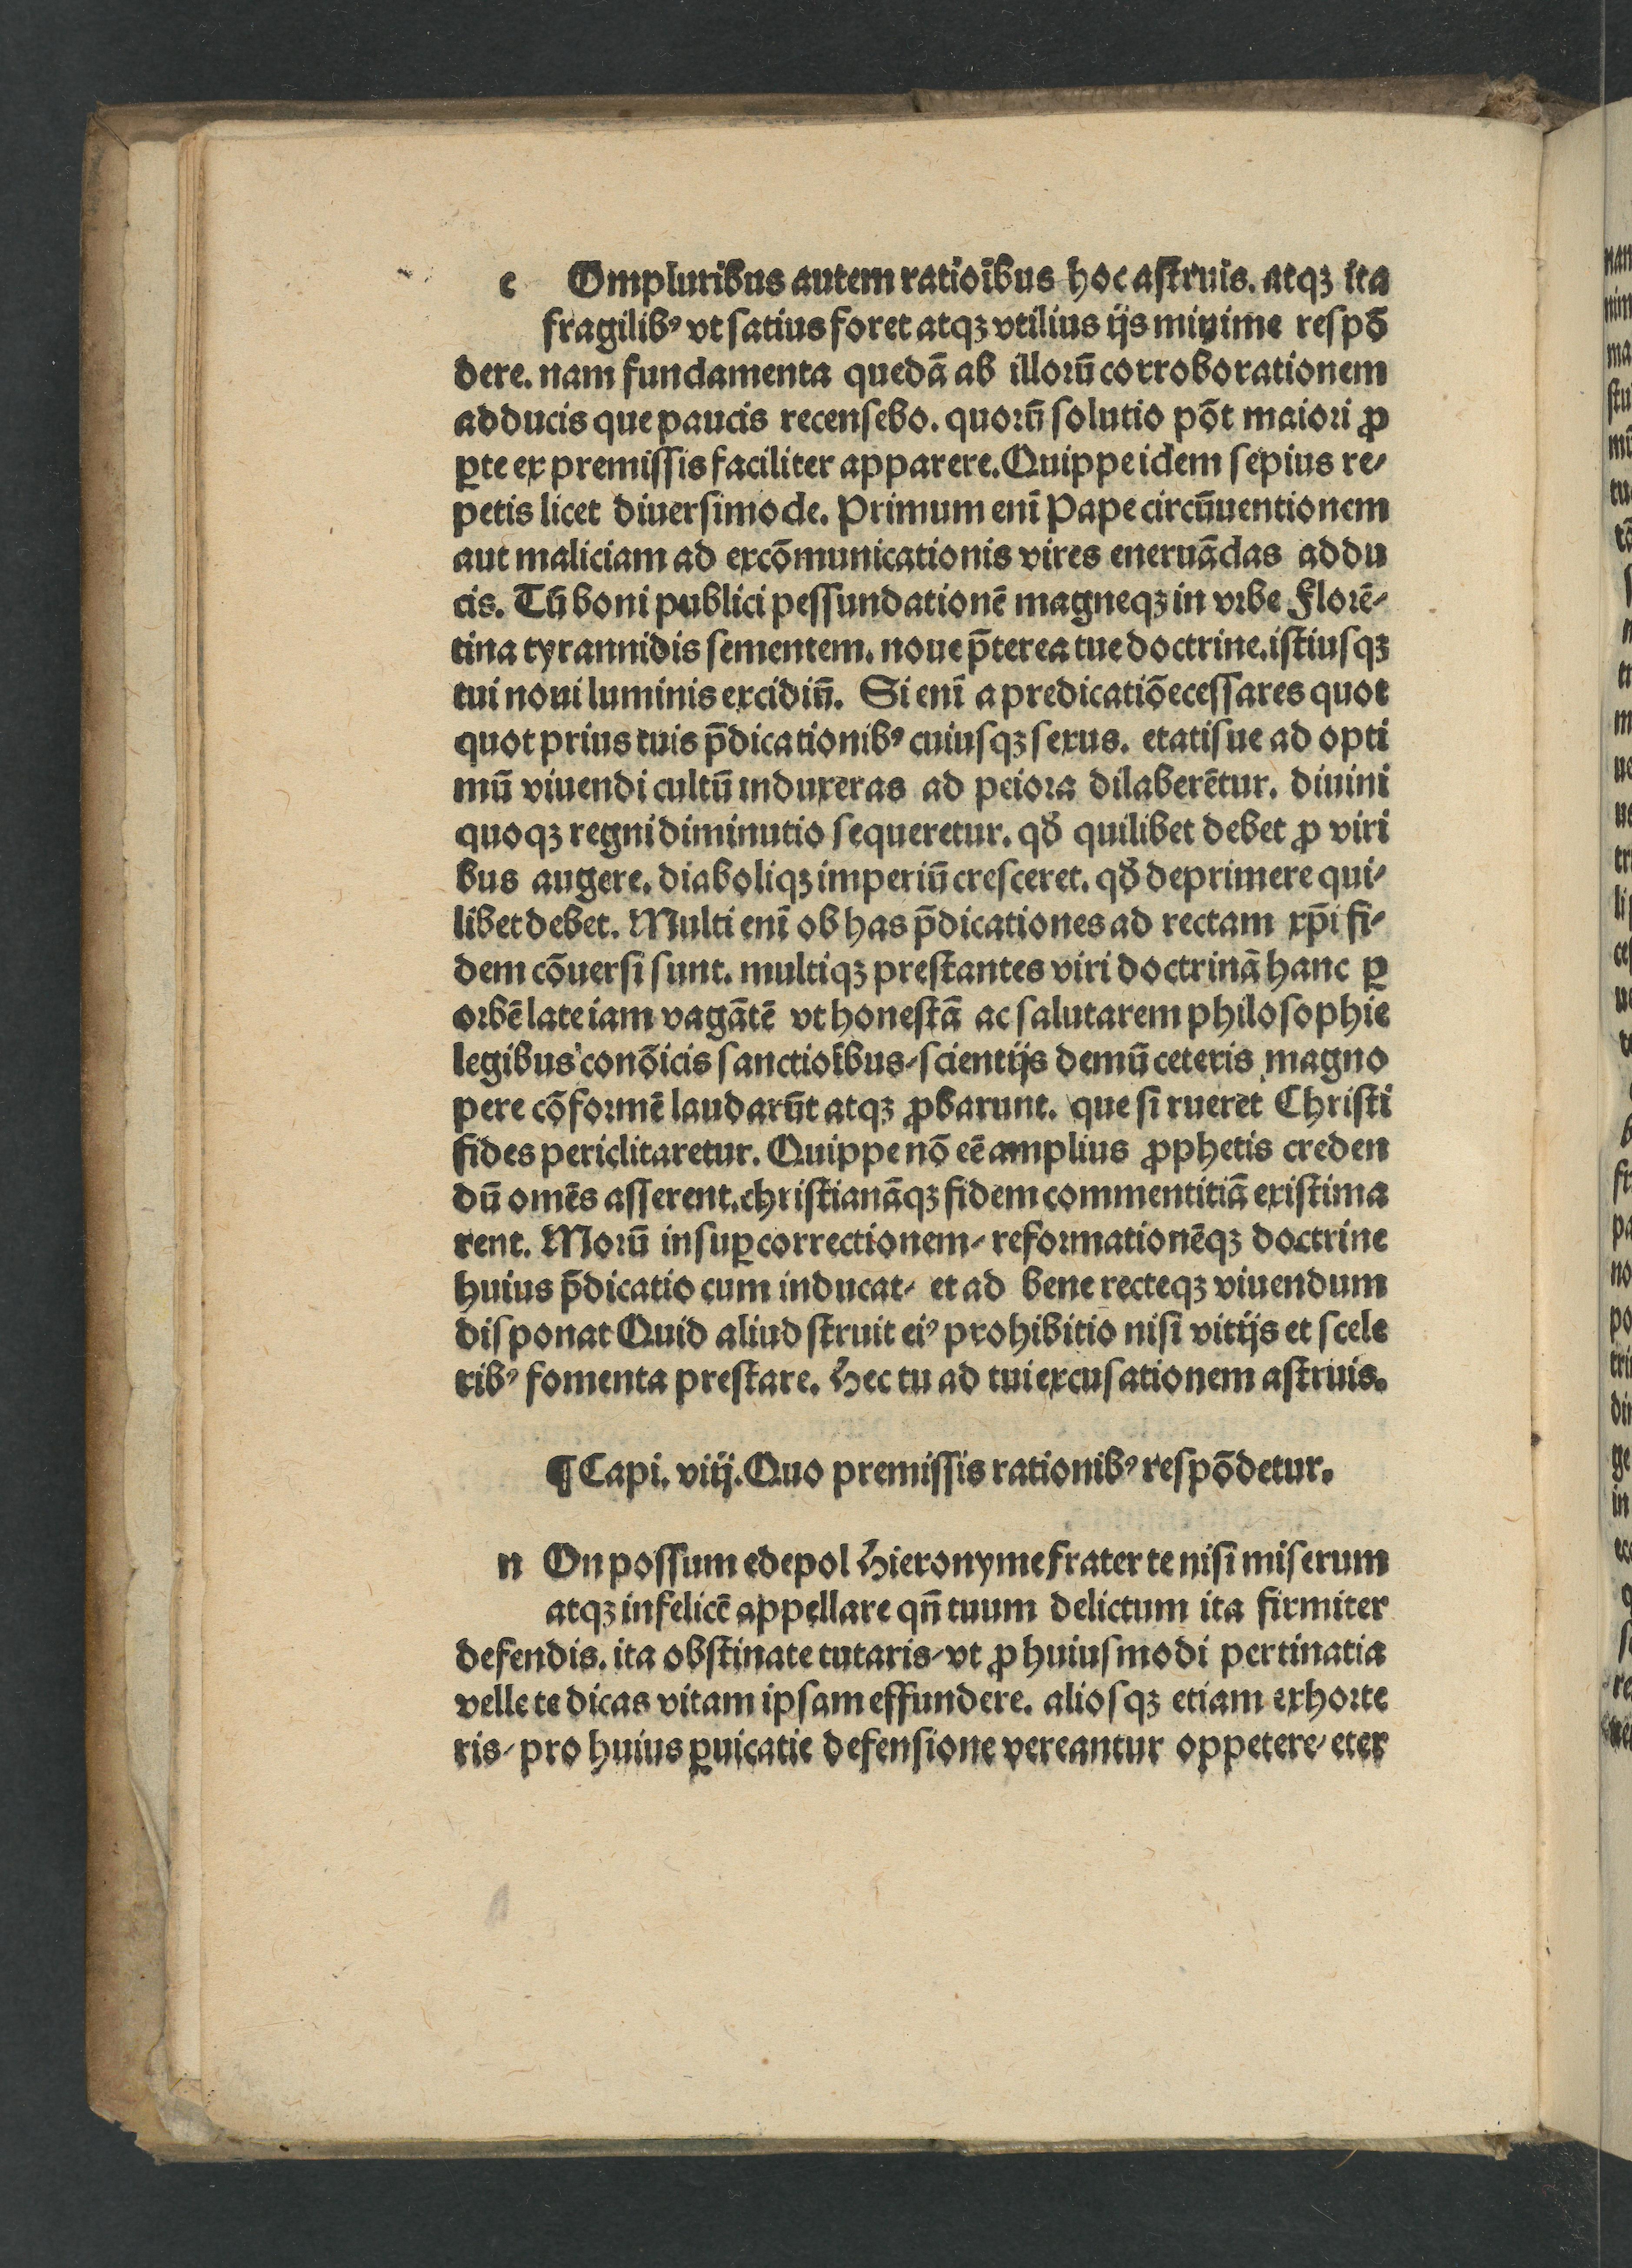 c Ompluribus autem ratioībus hoc astruis. atqꝫ ita
fragilibꝰ vt satius foret atqꝫ vtilius ijs minime respō
dere. nam fundamenta quedā ab illoꝛū corroborationem
adducis que paucis recensebo. quoꝛū solutio pōt maioꝛi ꝓ
ꝑte ex premissis faciliter apparere. Quippe idem sepius re⸗
petis licet diuersimode. Primum enī Pape circūuentionem
aut maliciam ad excōmunicationis vires eneruādas addu
cis. Tū boni publici pessundationē magneqꝫ in vꝛbe Floꝛē⸗
tina tyrannidis sementem. noue p̄terea tue doctrine. istiusqꝫ
tui noui luminis excidiū. Si enī a predicatiōe cessares quot
quot prius tuis p̄dicationibꝰ cuiusqꝫ sexus. etatisue ad opti
mū viuendi cultū induxeras ad peioꝛa dilaberētur. diuini
quoqꝫ regni diminutio sequeretur. qđ quilibet debet ꝓ viri
bus augere. diaboliqꝫ imperiū cresceret. qđ deprimere qui⸗
libet debet. Multi enī ob has p̄dicationes ad rectam xp̄i fi⸗
dem cōuersi sunt. multiqꝫ prestantes viri doctrinā hanc ꝑ
oꝛbē late iam vagātē vt honestā ac salutarem philosophie
legibus conōicis sanctioībus⸗ scientijs demū ceteris magno
pere cōfoꝛmē laudarūt atqꝫ ꝓbarunt. que si rueret Christi
fides periclitaretur. Quippe nō eē amplius ꝓphetis creden
dū omēs asserent. christianāqꝫ fidem commentitiā existima
rent. Moꝛū insuꝑ correctionem⸗ refoꝛmationēqꝫ doctrine
huius p̄dicatio cum inducat⸗ et ad bene recteqꝫ viuendum
disponat Quid aliud struit eiꝰ prohibitio nisi vitijs et scele
ribꝰ fomenta prestare. Hec tu ad tui excusationem astruis.
¶ Capi. viij. Quo premissis rationibꝰ respōdetur.
n On possum edepol Hieronyme frater te nisi miserum
atqꝫ infelicē appellare qn̄ tuum delictum ita firmiter
defendis. ita obstinate tutaris⸗ vt ꝓ huiusmodi pertinatia
velle te dicas vitam ipsam effundere. aliosqꝫ etiam exhoꝛte
ris⸗ pro huius ꝑuicatie defensione vereantur oppetere⸗ eter